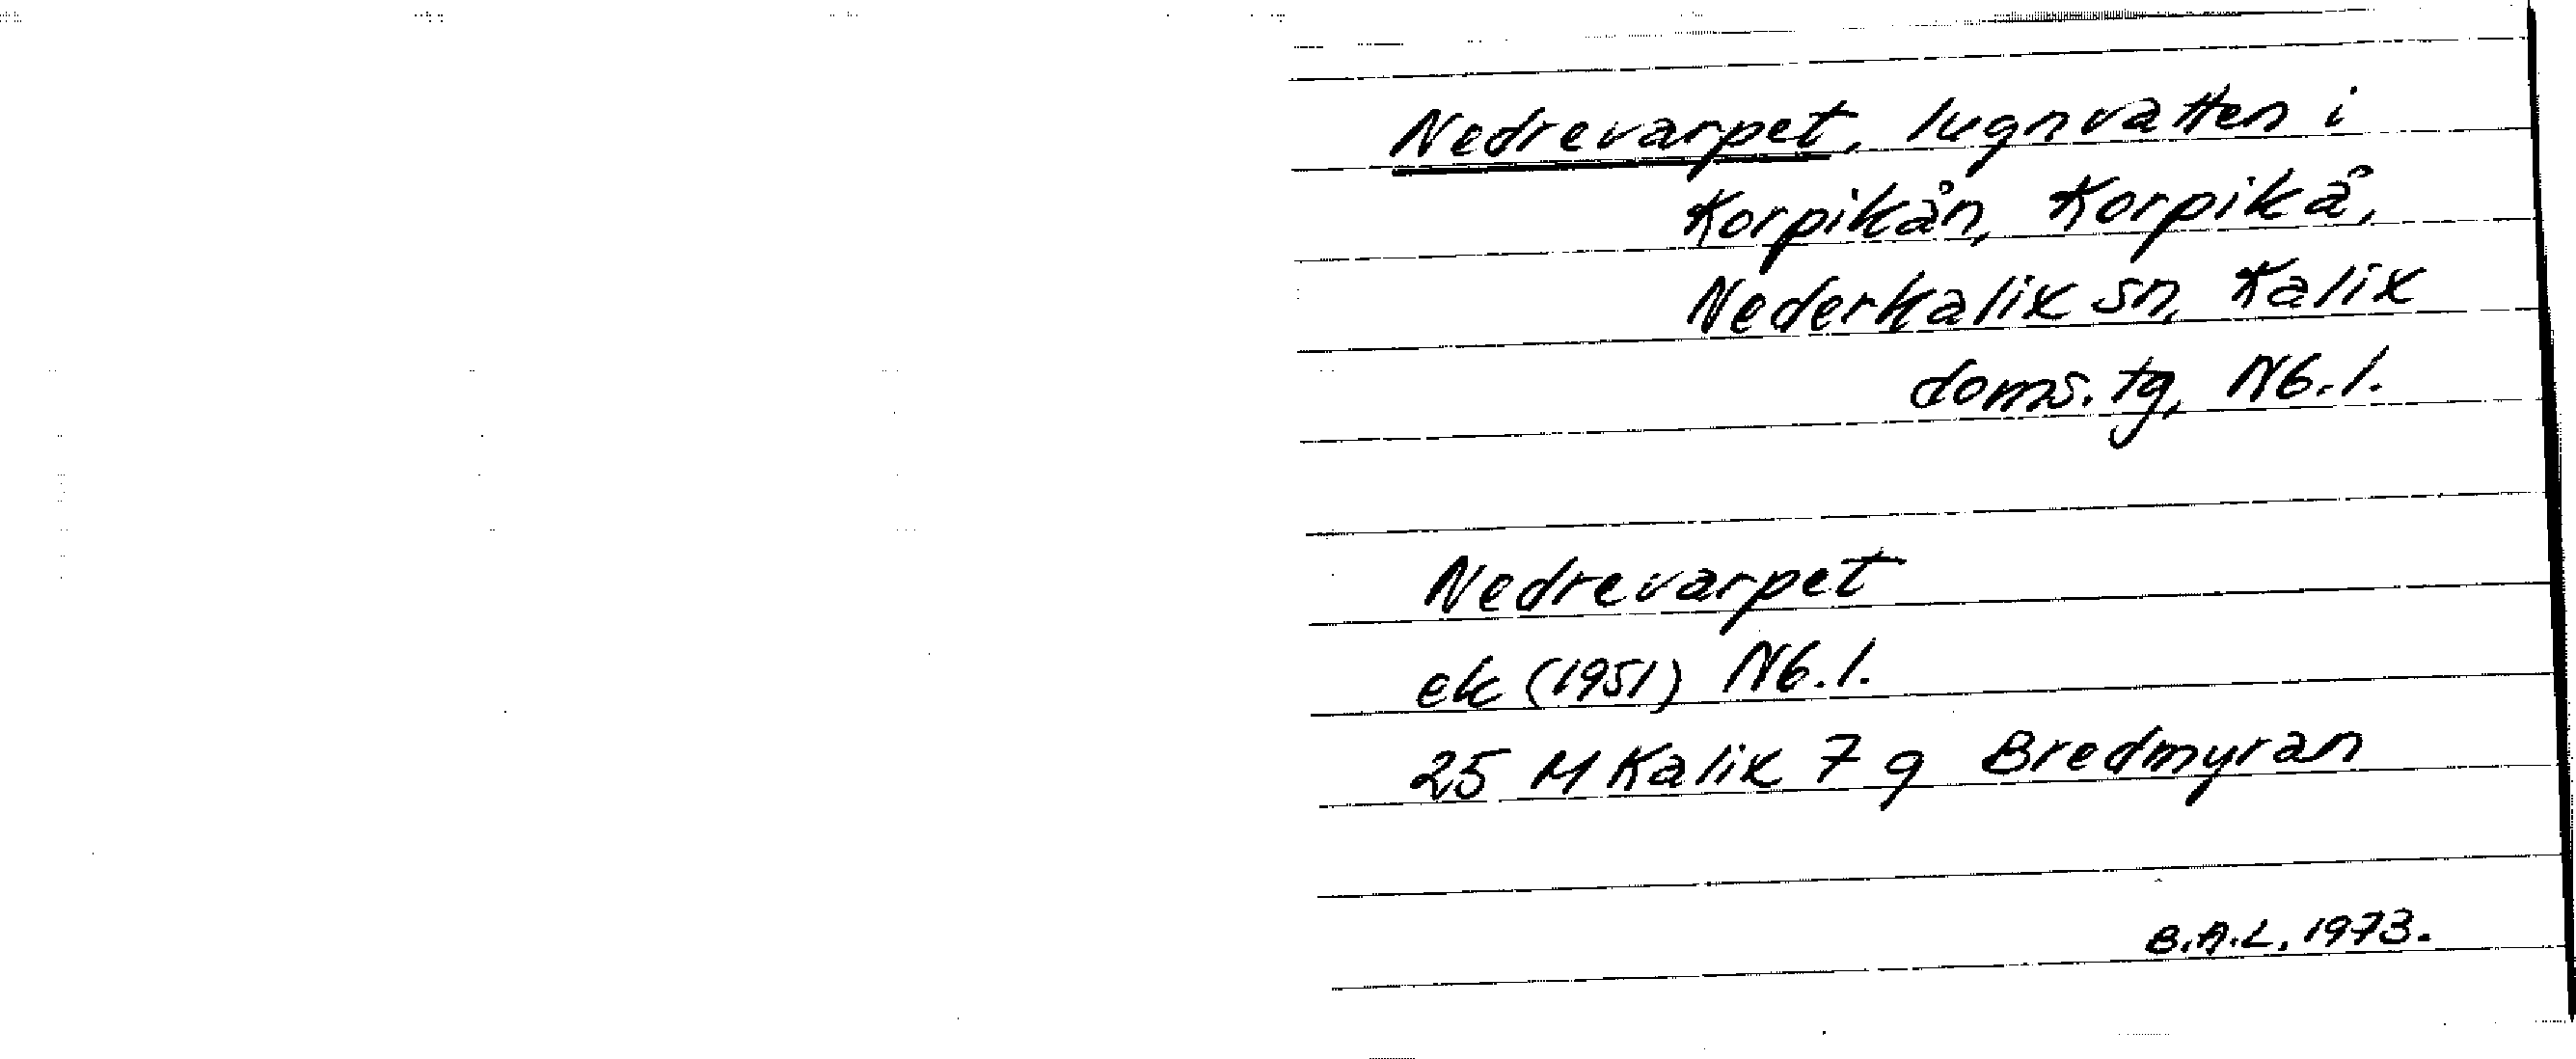 Nedrevarpet, lugnvatten i
Korpikån, Korpikå,
Nederkalix sn, Kalix
doms. tg, Nb. l.
Nedrevarpet
ek (1951) Nb. l.
25 M Kalix 7 g Bredmyran
B.A.L. 1973.